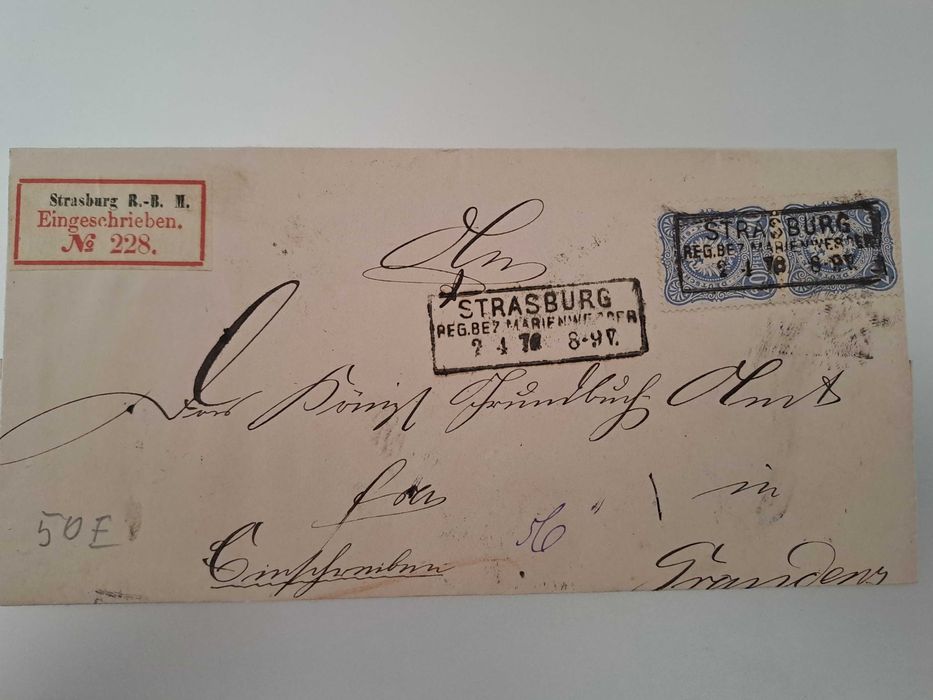 Strasburg R.-B. M.
Eingeschrieben.
№ 228.
STRASBURG
REG.BEZ.MARIENWERDER
2 4 78 8-9V.
An
STRASBURG
REG.BEZ.MARIENWERDER
2 4 78 8-9V.
Das Königl Grundbuch-Amt
fra
in
50 E
Einschreiben
Graudenz